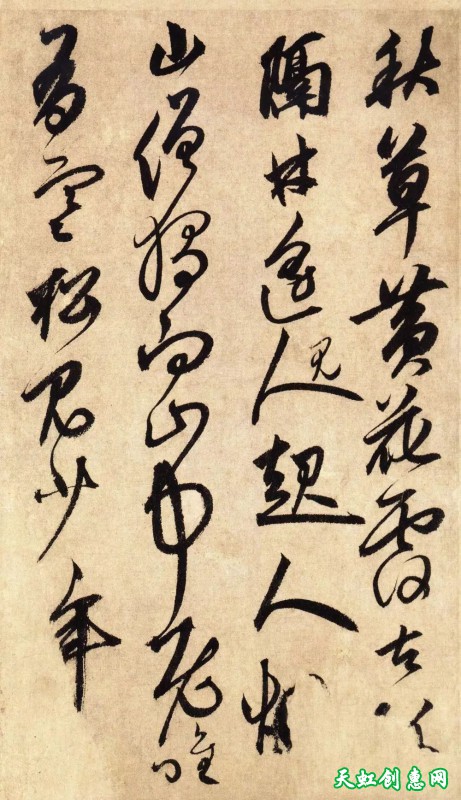 秋草黄花覆古阡
隔林遥见人起人烟
山僧独向山中老唯
有寒松见少年
天虹创惠网